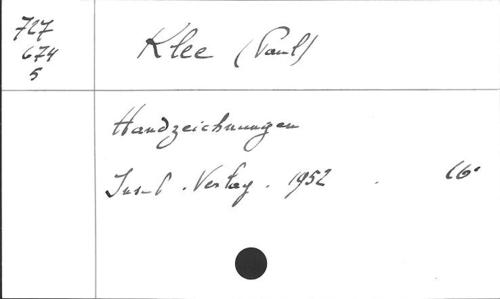 727
674
5
Klee (Paul)
Handzeichnungen
Insel . Verlag . 1952 . 16°